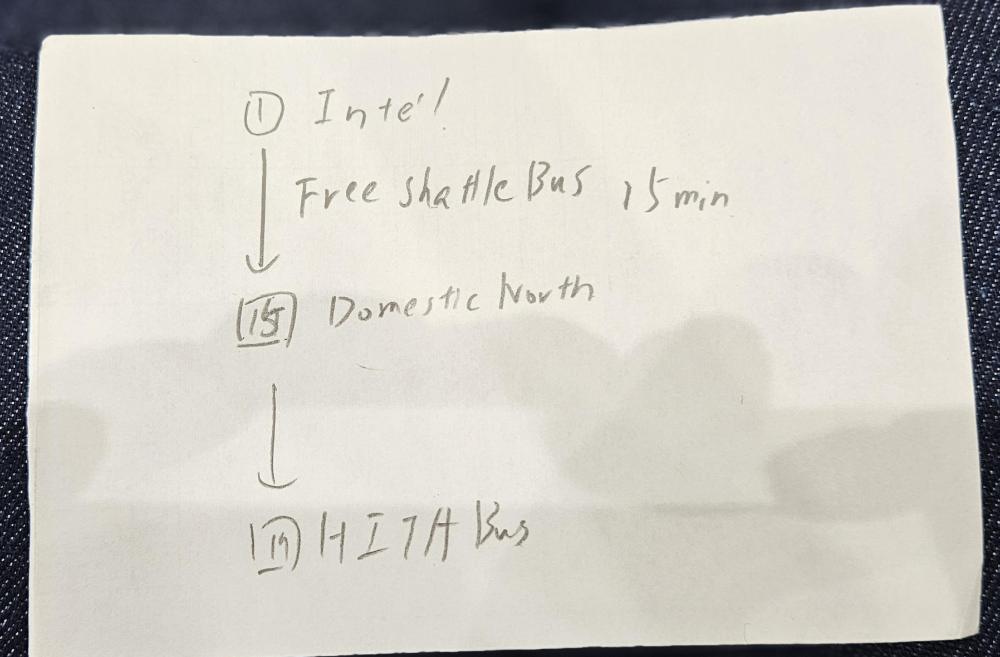 ① Inte'l
Free shattle Bus 15 min
15 Domestic North
HITA Bus